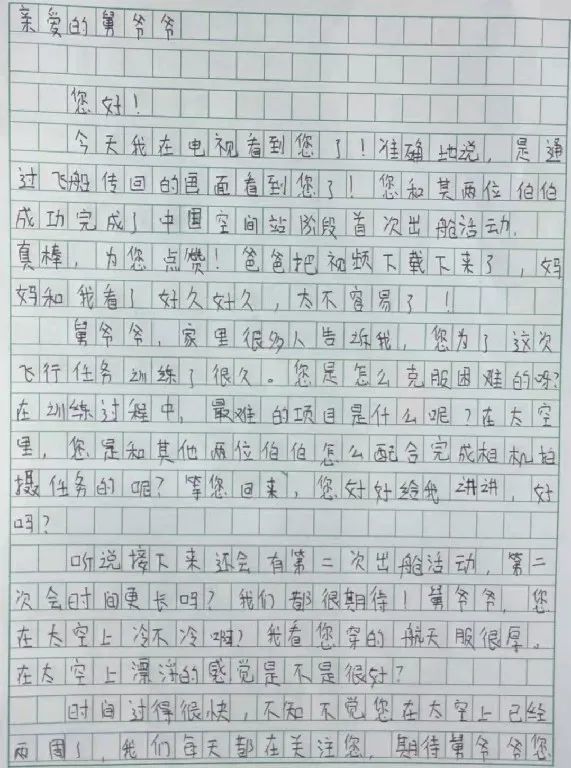 亲爱的舅爷爷
您好！
今天我在电视看到您了！准确地说，是通
过飞船传回的画面看到您了！您和其两位伯伯
成功完成了中国空间站阶段首次出舱活动，
真棒，为您点赞！爸爸把视频下载下来了，妈
妈和我看了好久好久，太不容易了！
舅爷爷，家里很多人告诉我，您为了这次
飞行任务训练了很久。您是怎么克服困难的呀？
在训练过程中，最难的项目是什么呢？在太空
里，您是和其他两位伯伯怎么配合完成相机拍
摄任务的呢？等您回来，您好好给我讲讲，好
吗？
听说接下来还会有第二次出舱活动，第二
次会时间更长吗？我们都很期待！舅爷爷，您
在太空上冷不冷啊？我看您穿的航天服很厚。
在太空上漂浮的感觉是不是很好？
时间过得很快，不知不觉您在太空上已经
两周了，我们每天都在关注您，期待舅爷爷您